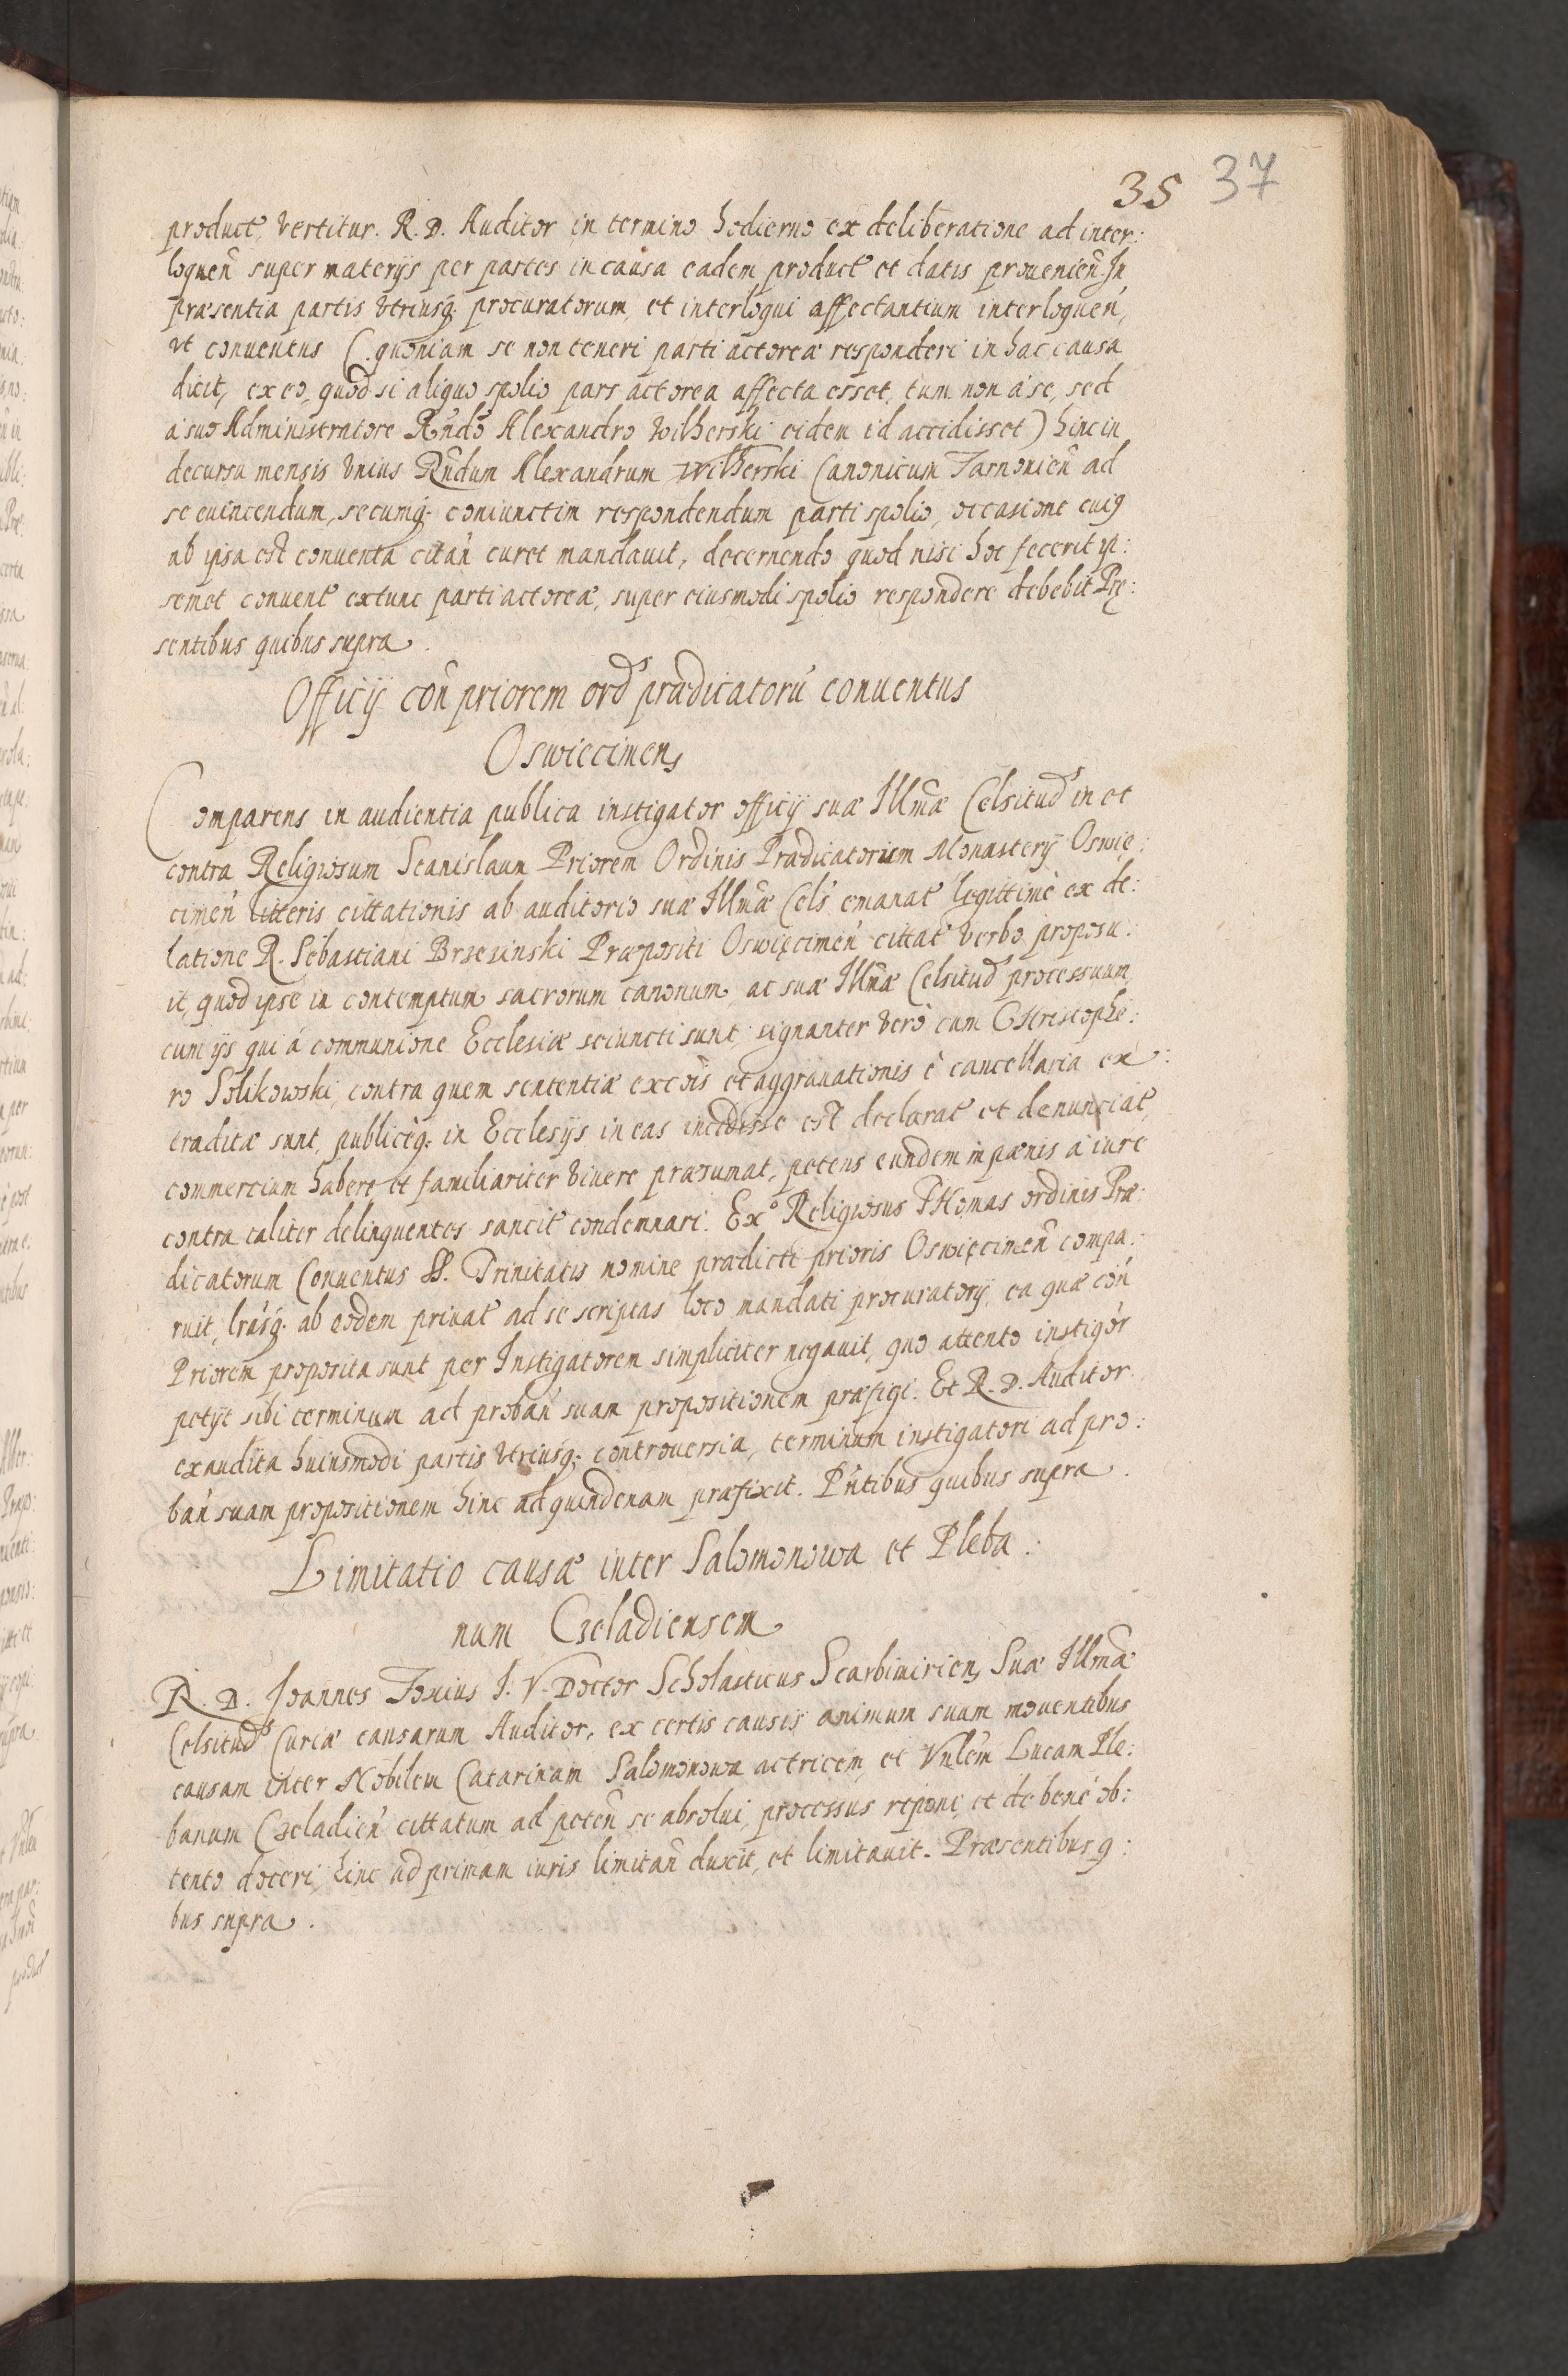 35 37
product̃ vertitur. R. D. Auditor in termino hodierno ex deliberatione ad inter:
loquen̄ super materijs per partes in causa eadem product̃ et datis prouenien̄. In
præsentia partis vtriusq̨ procuratorum, et interloqui affectantium interloquen̄,
vt conuentus (quoniam se non teneri parti actoreæ responderi in hac causa
dicit, ex eo, quòd si aliquo spolio pars actorea affecta esset, tum non à se, sed
à suo Administratore Rn̄do Alexandro Wilherski eidem id accidisset) hinc in
decursu mensis vnius Rn̄dum Alexandrum Wilherski Canonicum Tarnouien̄ ad
se euincendum, secumq̨ coniunctim respondendum parti spolio, occasione cuiꝯ
ab ipsa est conuenta citan̄ curet mandauit, decernendo quod nisi hoc fecerit ip:
semet conuent̃ extunc parti actoreæ, super eiusmodi spolio respondere debebit Præ:
sentibus quibus supra.
Officij con̄ priorem ord̃ prædicatorū conuentus
Oswiecimen̨
Comparens in audientia publica instigator officij suæ Illm̄æ Celsitud̃ in et
contra Religiosum Stanislaum Priorem Ordinis Prædicatorum Monasterij Oswie:
cimen̄ litteris cittationis ab auditorio suæ Illm̄æ Cels̃ emanat̃ legittimè ex de:
latione R. Sebastiani Brzezinski Præpositi Oswięcimen̄ cittat̃ verbo proposu:
it, quod ipse in contemptum sacrorum canonum, ac suæ Illm̄æ Celsitud̃ processuum,
cum ijs qui à communione Ecclesiæ seiuncti sunt, signanter verò cum Christophe:
ro Solikowski, contra quem sententiæ excōis et aggrauationis è cancellaria ex:
traditæ sunt, publiceq̨ in Ecclesijs in eas incidisse est declarat̃ et denunciat̃,
commercium habere et familiariter viuere præsumat, petens eundem in pænis à iure
contra taliter delinquentes sancit̃ condemnari. Exº Religiosus Thomas ordinis Præ:
dicatorum Conuentus SS. Trinitatis nomine prædicti prioris Oswięcimen̄ compa:
ruit, lr̄asq̨ ab eodem priuat̃ ad se scriptas loco mandati procuratorij, ea quæ con̄
Priorem proposita sunt per Instigatorem simpliciter negauit, quo attento instigōr
petijt sibi terminum ad proban̄ suam propositionem præfigi. Et R. D. Auditor
exaudita huiusmodi partis vtriusq̨ controuersia, terminum instigatori ad pro:
ban̄ suam propositionem hinc ad quindenam præfixit. Pn̄tibus quibus supra.
Limitatio causæ inter Salomonowa et Pleba:
num Czeladiensem
R. D. Joannes Foxius I. V. Doctor Scholasticus Scarbimirien̨ Suæ Illm̄æ
Celsitud̃ Curiæ causarum Auditor, ex certis causis animum suum mouentibus
causam inter Nobilem Catarinam Salomonowa actricem, et Vnlem̄ Lucam Ple:
banum Czeladien̄ cittatum ad peten̄ se absolui, processus reponi, et de bene ob:
tento doceri, hinc ad primam iuris limitan̄ duxit, et limitauit. Præsentibus q:
bus supra.